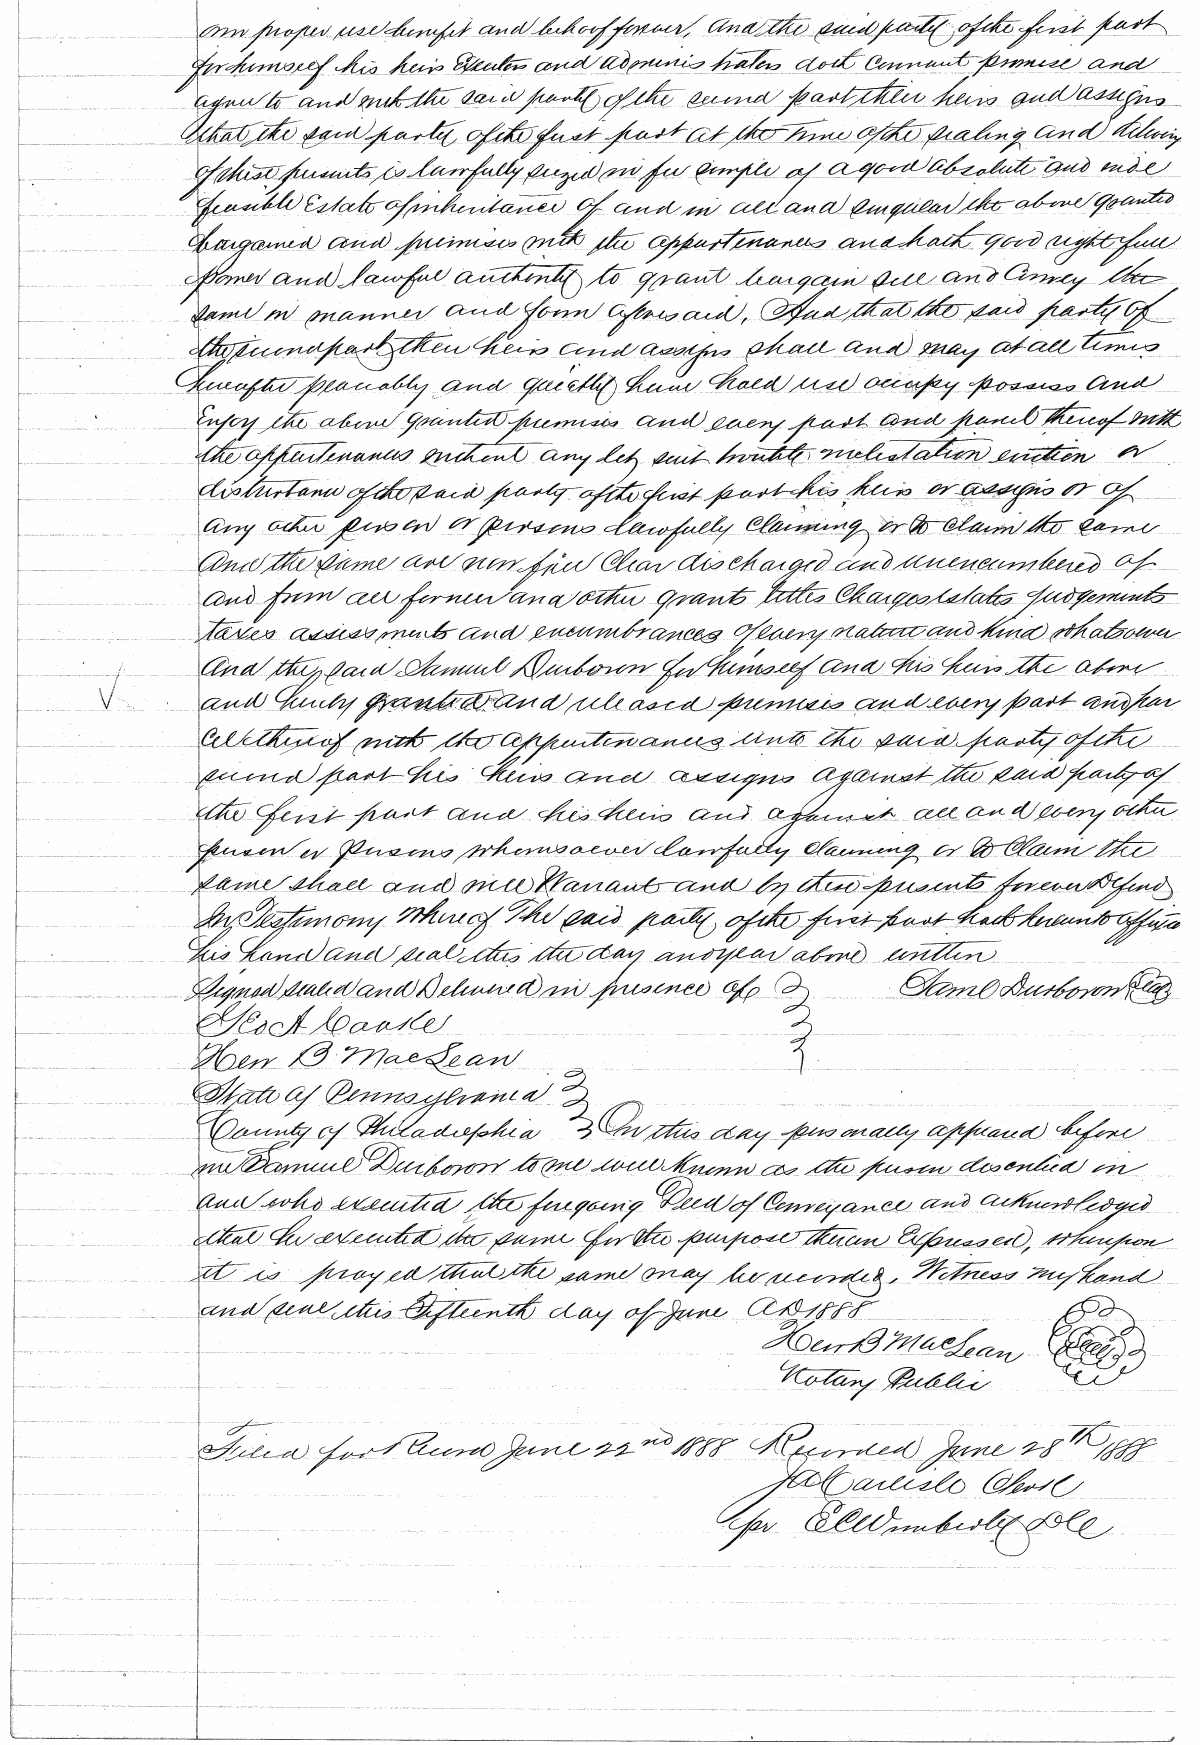 own proper use benefit and behoof forever, And the said party of the first part
for himself his heirs Executors and administrators doth Covenant promise and
agree to and with the said party of the second part their heirs and assigns
that the said party of the first part at the time of the sealing and delivery
of these presents is lawfully seized in fee simple of a good absolute and inde
feasible Estate of inheritance of and in all and singular the above granted
bargained and premises with the appurtenances and hath good right full
power and lawful authority to grant bargain sell and Convey the
same in manner and form aforesaid, And that the said party of
the second part their heirs and assigns shall and may at all times
hereafter peaceably and quietly have hold use occupy possess and
enjoy the above granted premises and every part and parcel thereof with
the appurtenances without any let suit trouble molestation eviction or
disturbance of the said party of the first part his heirs or assigns or of
any other person or persons lawfully claiming or to claim the same
And the same are now free Clear discharged and unencumbered of
and from all former and other grants titles Charges Estates judgements
taxes assessments and encumbrances of every nature and kind whatsoever
And the said Samuel Durborow for himself and his heirs the above
and hereby granted and released premises and every part and par
cell thereof with the appurtenances unto the said party of the
second part his heirs and assigns against the said party of
the first part and his heirs and against all and every other
person or persons whomsoever lawfully claiming or to Claim the
same shall and will Warrant and by these presents forever Defend
In Testimony Whereof The said party of the first part hath hereunto affixed
his hand and seal this the day and year above written
Signed sealed and Delivered in presence of Saml Durborow Seal
Hen B MacLean
State of Pennsylvania
County of Philadelphia On this day personally appeared before
me Samuel Durborow to me well known as the person described in
and who executed the foregoing Deed of Conveyance and acknowledged
that he executed the same for the purpose therein Expressed, whereupon
it is prayed that the same may be recorded. Witness my hand
and seal this Fifteenth day of June AD 1888
Hen B MacLean Seal
Notary Public
Filed for Record June 22nd 1888 Recorded June 28th 1888
Carlisle Clerk
per